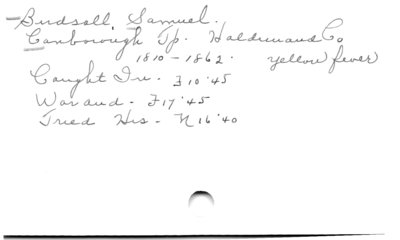 Birdsall, Samuel.
Canborough Tp. Haldimand Co
1810 - 1862. yellow fever
Caught In - F 10 '45
War and - F 17 '45
Tried His - N 16 '40